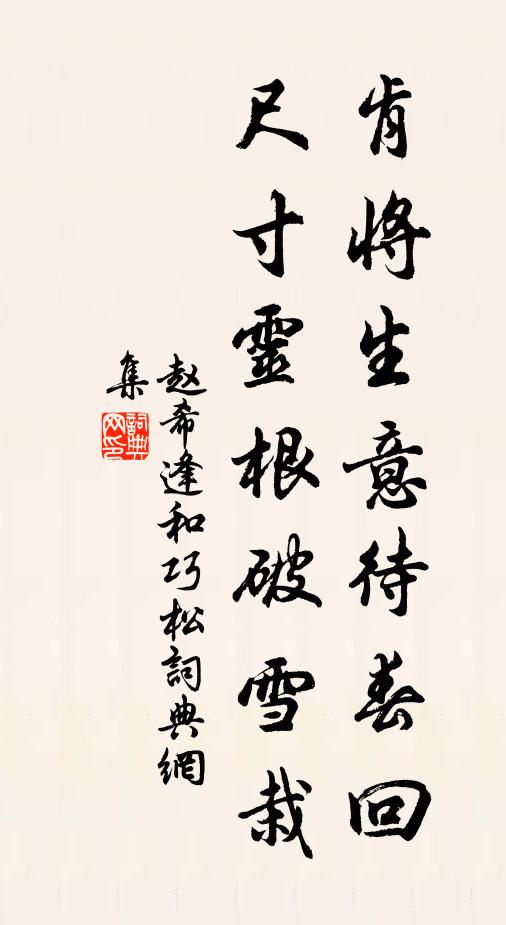 肯將生意待春回
尺寸靈根破雪栽
赵希逢和巧松詞典網
集
詞典
网印